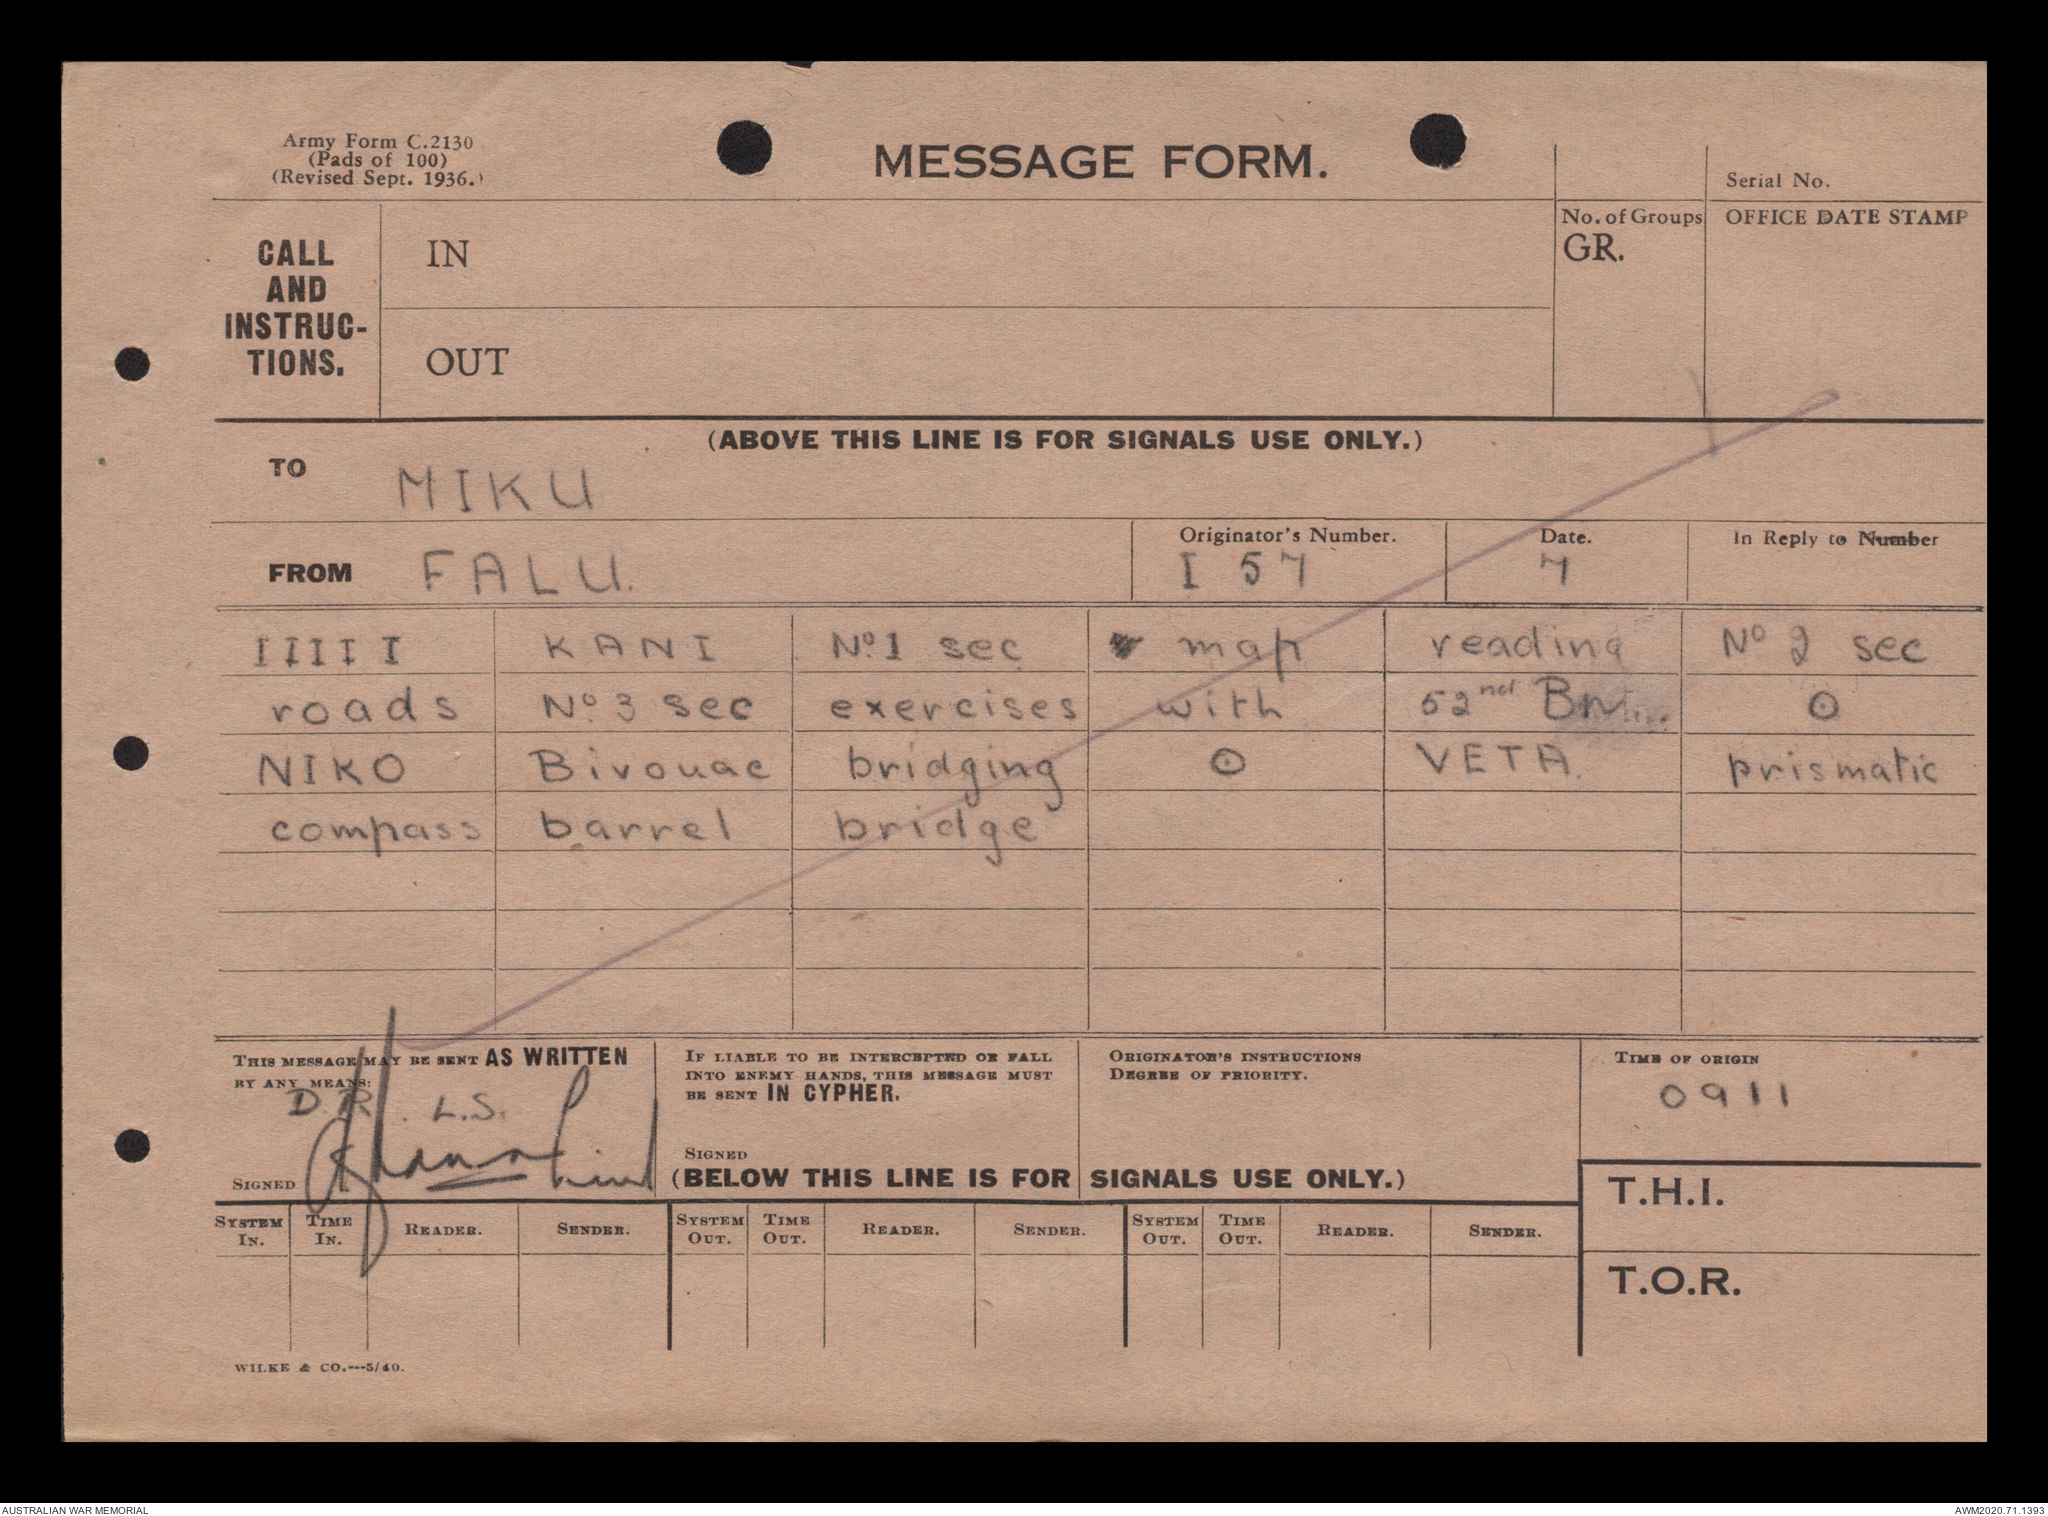 Army Form C.2130
(Pads of 100)
(Revised Sept. 1936.)
MESSAGE FORM.
Serial No.
CALL
AND
INSTRUC-
TIONS.
IN
OUT
No. of Groups
GR.
OFFICE DATE STAMP
(ABOVE THIS LINE IS FOR SIGNALS USE ONLY.)
TO MIKU
FROM FALU.
Originator's Number.
I 57
Date.
7
In Reply to Number
I I I I I KANI No. 1 sec map reading No 2 sec
roads No. 3 sec exercises with 52nd Bn. ⊙
NIKO Bivouac bridging ⊙ VETA. prismatic
compass barrel bridge
THIS MESSAGE MAY BE SENT AS WRITTEN
BY ANY MEANS:
D.R. L.S.
SIGNED
IF LIABLE TO BE INTERCEPTED OR FALL
INTO ENEMY HANDS, THIS MESSAGE MUST
BE SENT IN CYPHER.
SIGNED
ORIGINATOR'S INSTRUCTIONS
DEGREE OF PRIORITY.
TIME OF ORIGIN
0911
(BELOW THIS LINE IS FOR SIGNALS USE ONLY.)
T.H.I.
T.O.R.
SYSTEM IN. TIME IN. READER. SENDER. SYSTEM OUT. TIME OUT. READER. SENDER. SYSTEM OUT. TIME OUT. READER. SENDER.
WILKE & CO.---5/40.
AUSTRALIAN WAR MEMORIAL
AWM2020.71.1393